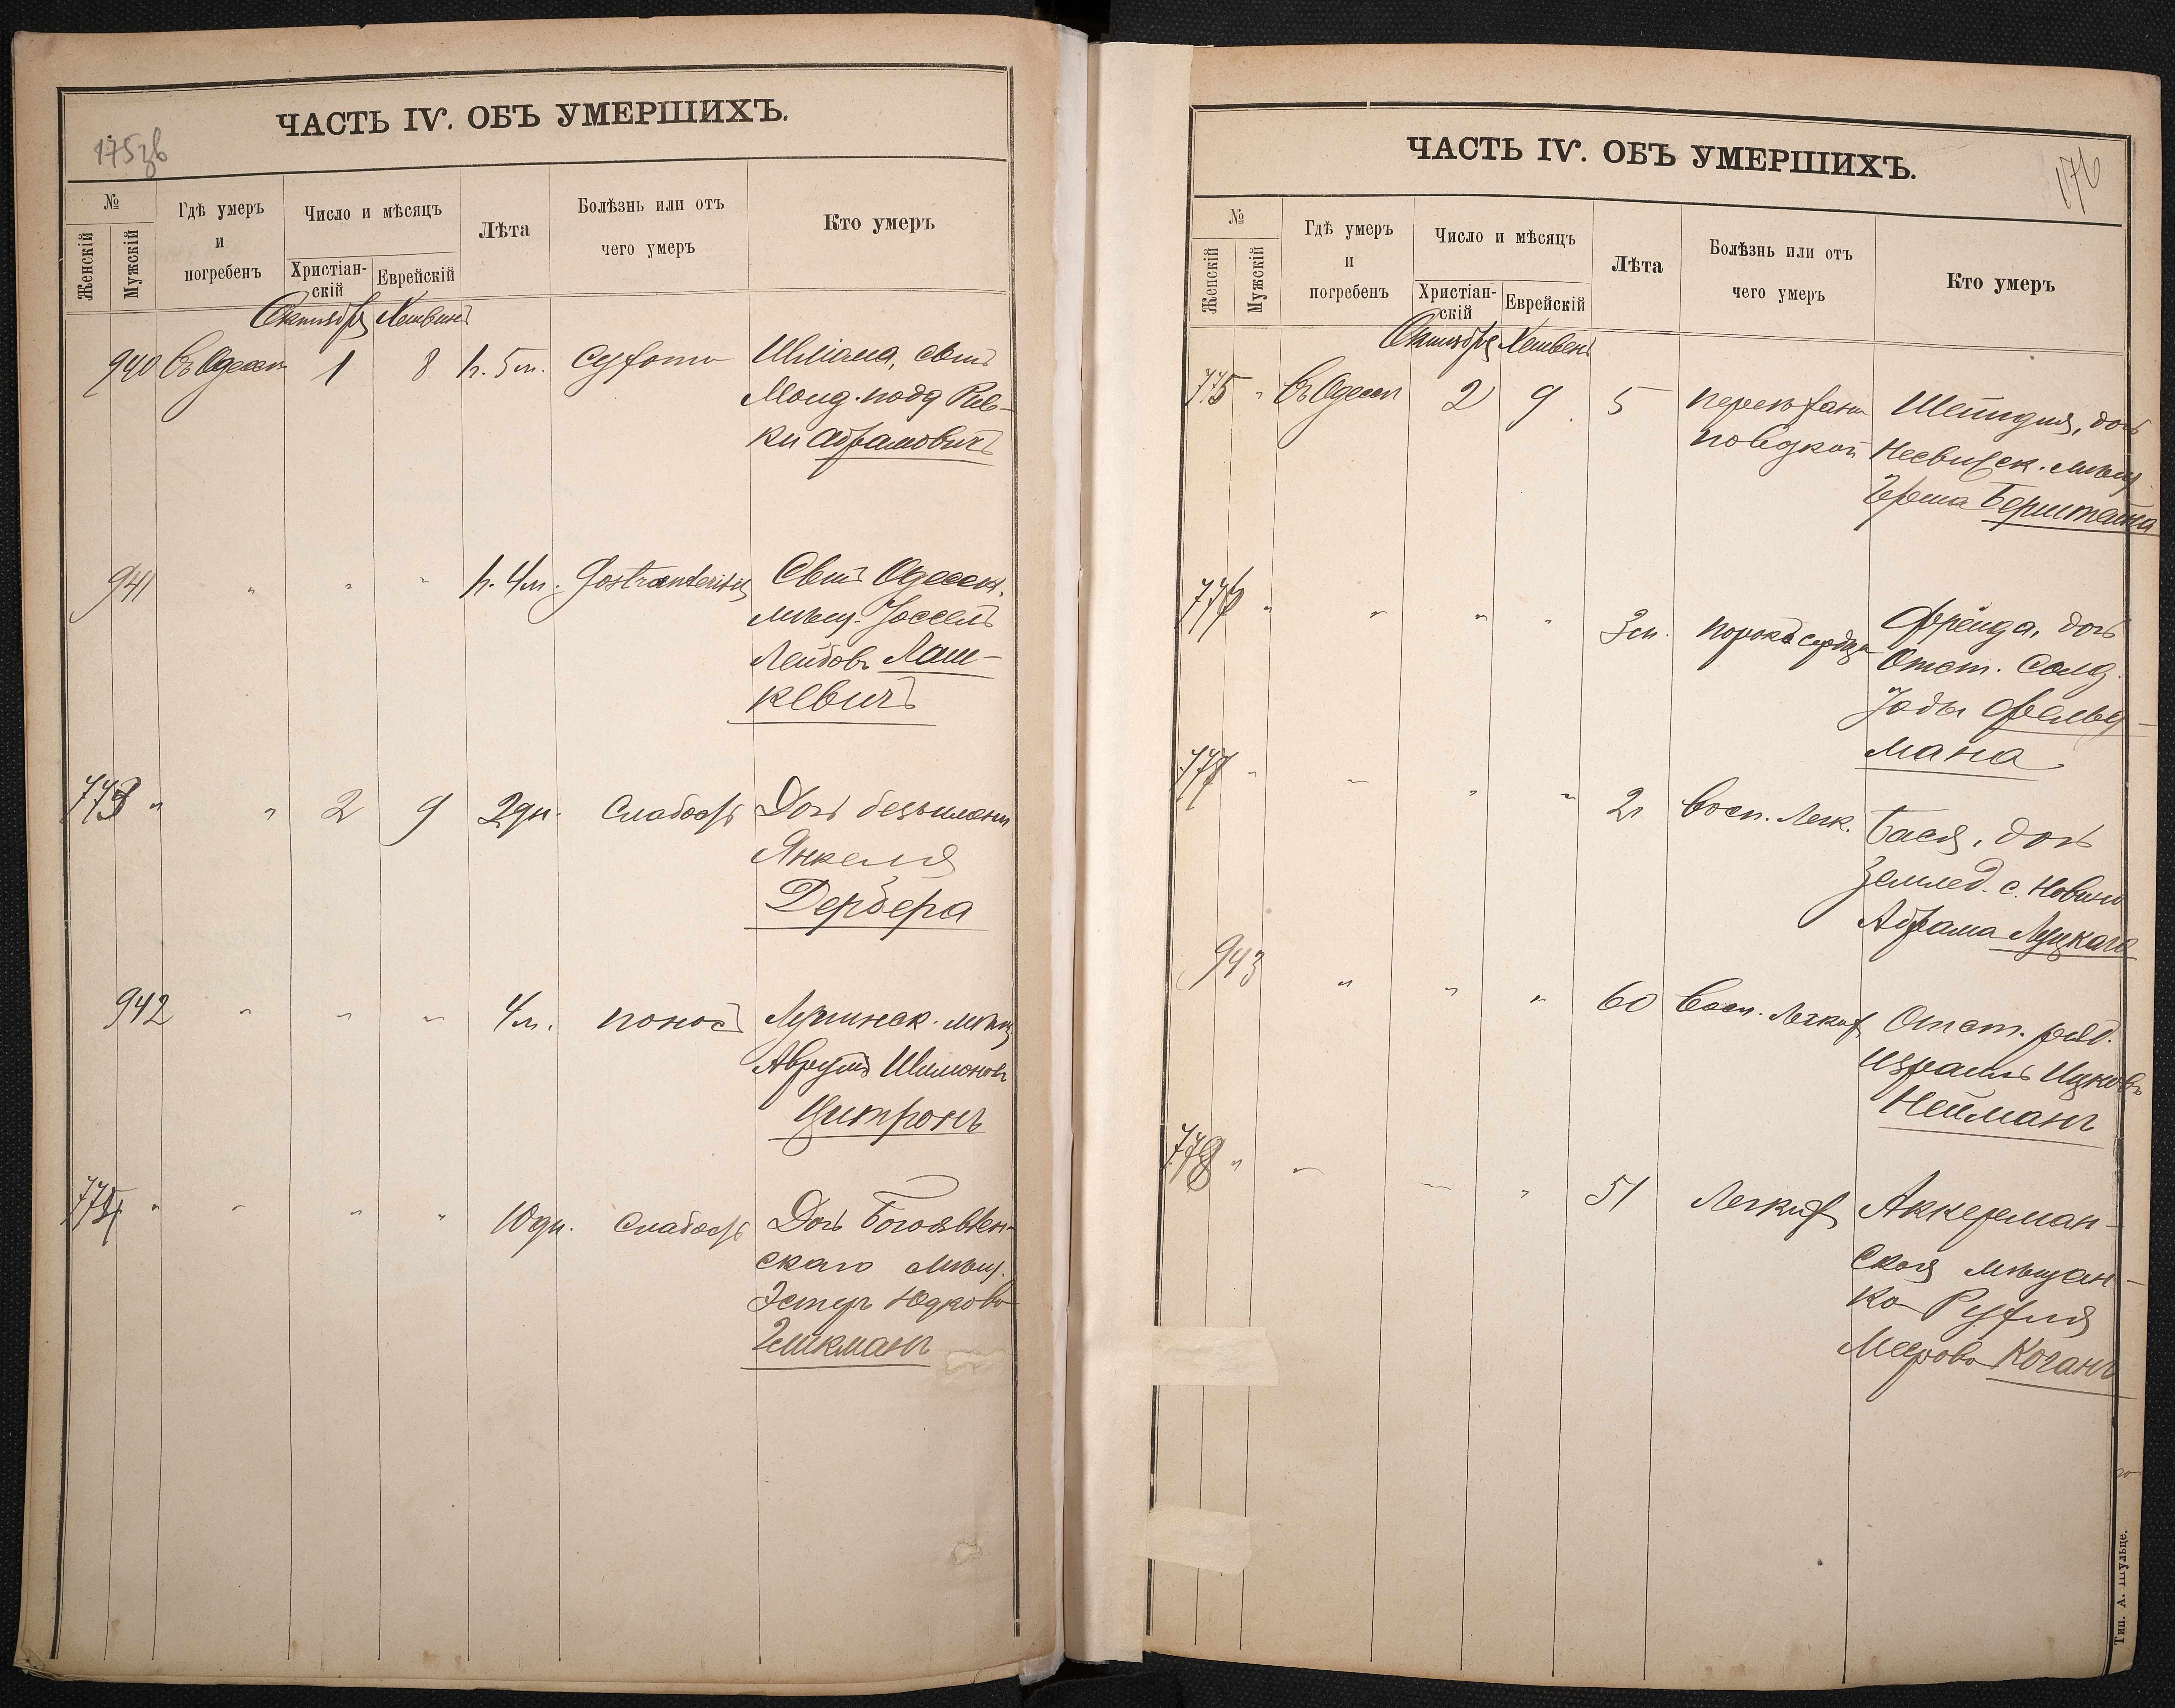 ЧАСТЬ IV. ОБЪ УМЕРШИХЪ.
175зв
№
Женскій
Мужскій
Гдѣ умеръ
и
погребенъ
Число и мѣсяцъ
Христіан-
скій
Еврейскій
Лѣта
Болѣзнь или отъ
чего умеръ
Кто умеръ
Октября Хешвенъ
940 въ Одессѣ 1 8 5 м. сынъ
Молд. подд Рив-
ки Абрамовичъ
941 " " " 4 м. Сынъ Одесск.
мѣщ. Іоссель
Лейбовъ Лаш-
кевичъ
773 " " 2 9 2 дн. Слабость Дочь безъимени
Янкеля
Дербера
942 " " " 4 м. поносъ мѣщ.
Аврумъ Шимоновъ
Цитронъ
774 " " " " 10 дн. Слабость Дочь Богоявлен-
скаго мѣщ.
Эстеръ Юдкова
ЧАСТЬ IV. ОБЪ УМЕРШИХЪ.
176
№
Женскій
Мужскій
Гдѣ умеръ
и
погребенъ
Число и мѣсяцъ
Христіан-
скій
Еврейскій
Лѣта
Болѣзнь или отъ
чего умеръ
Кто умеръ
Октября Хешвенъ
775 " въ Одессѣ 2 9 5 Шейндля, дочь
Несвижск. мѣщ.
Герша Берштейна
776 " " " " порокъ сердца Фрейда, дочь
Отст. Солд.
Фельд-
мана
777 " " " " 2 Восп. Легк. Бася, дочь
Землед. с.
Абрама Луцкаго
943 " " " 60 Восп. Легких Отст. ряд.
Израиль Ицковъ
Нейманъ
778 " " " " 51 Легких Аккерман-
ская мѣщан-
ка Рухля
Меерова Коганъ
Тип. А. Шульце.